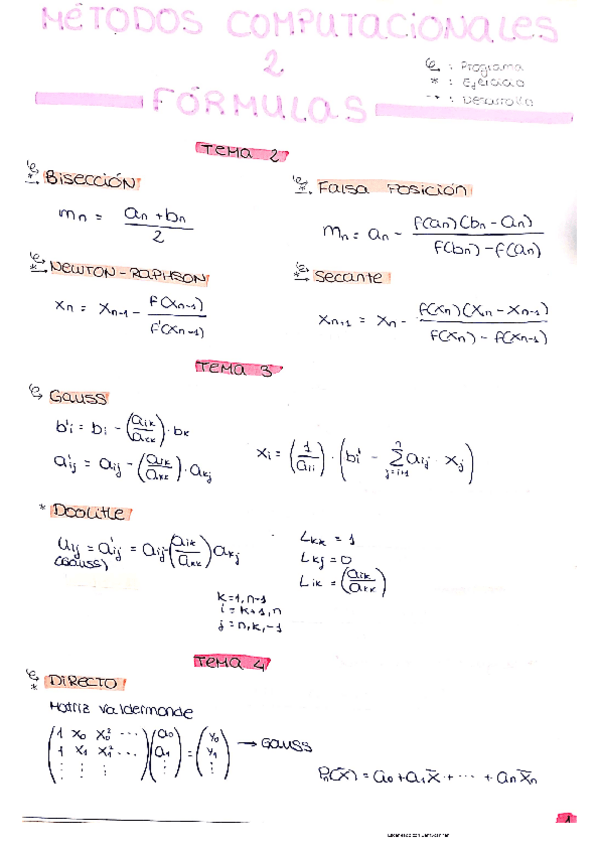 MÉTODOS COMPUTACIONALES
2
↳ : Programa
* : Ejercicio
→ : Desarrollo
FÓRMULAS
TEMA 2
Bisección
m_n = (a_n + b_n) / 2
* Falsa Posición
m_n = a_n - f(a_n)(b_n - a_n) / (f(b_n) - f(a_n))
Newton-Raphson
x_n = x_{n-1} - f(x_{n-1}) / f'(x_{n-1})
* Secante
x_{n+1} = x_n - f(x_n)(x_n - x_{n-1}) / (f(x_n) - f(x_{n-1}))
TEMA 3
Gauss
b'_i = b_i - (a_{ik}/a_{kk}) · b_k
a'_{ij} = a_{ij} - (a_{ik}/a_{kk}) · a_{kj}
x_i = (1/a_{ii}) · (b'_i - Σ_{j=i+1}^{n} a_{ij} · x_j)
* Doolitle
u_{ij} = a'_{ij} = a_{ij} - (a_{ik}/a_{kk}) a_{kj}
(GAUSS)
L_{kk} = 1
L_{kj} = 0
L_{ik} = (a_{ik}/a_{kk})
k=1, n-1
i = k+1, n
j = n, k, -1
TEMA 4
* DIRECTO
Matriz Valdermonde
(1 x_0 x_0^2 ...) (a_0) (y_0)
(1 x_1 x_1^2 ...) (a_1) = (y_1) → GAUSS
(⋮ ⋮ ⋮) (⋮) (⋮)
P_n(x̄) = a_0 + a_1 x̄ + ... + a_n x̄_n
1